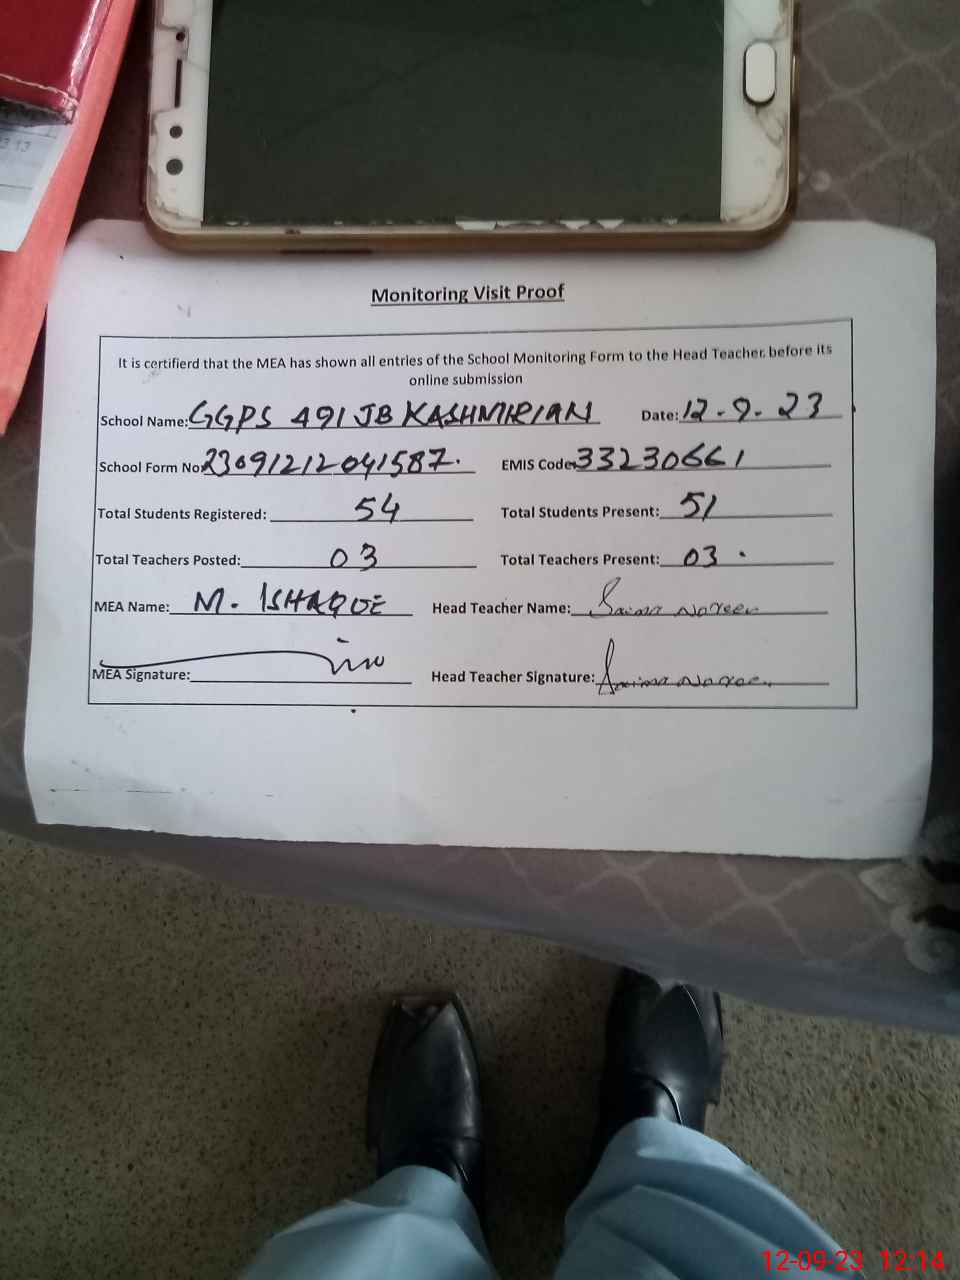 3 13
Monitoring Visit Proof
It is certifierd that the MEA has shown all entries of the School Monitoring Form to the Head Teacher before its
online submission
School Name: GGPS 491 JB KASHMIRIAN Date: 12-9-23
School Form No: 23091212041587. EMIS Code: 33230661
Total Students Registered: 54 Total Students Present: 51
Total Teachers Posted: 03 Total Teachers Present: 03.
MEA Name: M. ISHAQUE Head Teacher Name: Saima Noreen
MEA Signature: Head Teacher Signature: Saima Noreen
12-09-23 12:14